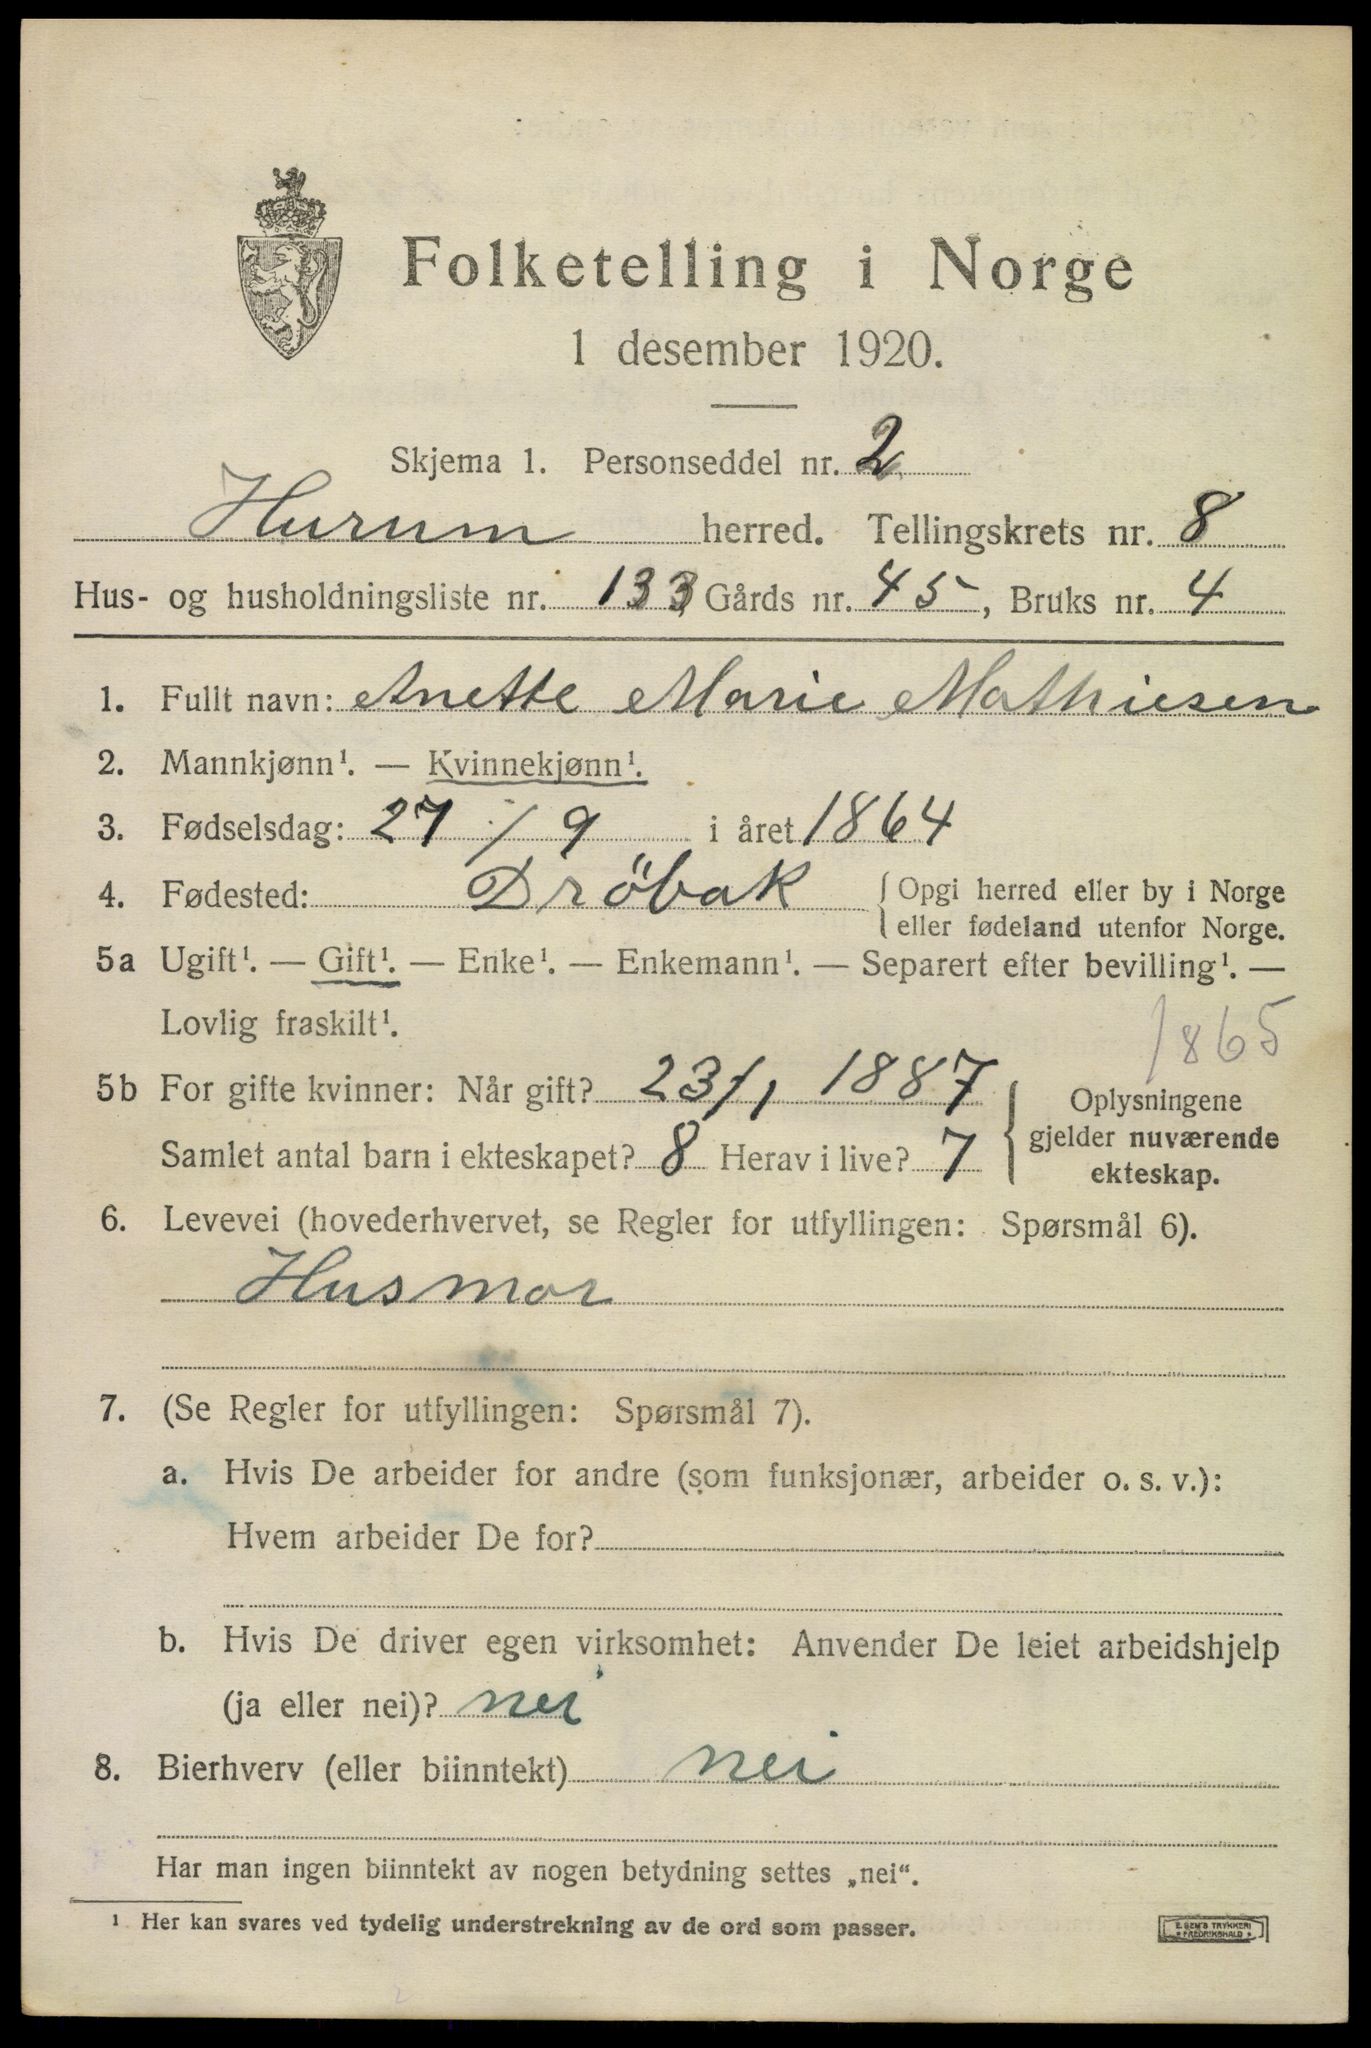 Folketelling i Norge
1 desember 1920.
Skjema 1. Personseddel nr. 2
Hurum herred. Tellingskrets nr. 8
Hus- og husholdningsliste nr. 133, Gårds nr. 45, Bruks nr. 4
1. Fullt navn: Anette Marie Mathiesen
2. Mannkjønn¹. — Kvinnekjønn¹.
3. Fødselsdag: 27/9 i året 1864
4. Fødested: Dröbak { Opgi herred eller by i Norge
eller fødeland utenfor Norge.
5a Ugift¹. — Gift¹. — Enke¹. — Enkemann¹. — Separert efter bevilling¹. —
Lovlig fraskilt¹.
1865
5b For gifte kvinner: Når gift? 23/1 1887
Samlet antal barn i ekteskapet? 8 Herav i live? 7
Oplysningene
gjelder nuværende
ekteskap.
6. Levevei (hovederhvervet, se Regler for utfyllingen: Spørsmål 6).
Husmor
7. (Se Regler for utfyllingen: Spørsmål 7).
a. Hvis De arbeider for andre (som funksjonær, arbeider o. s. v.):
Hvem arbeider De for?
b. Hvis De driver egen virksomhet: Anvender De leiet arbeidshjelp
(ja eller nei)? nei
8. Bierhverv (eller biinntekt) nei
Har man ingen biinntekt av nogen betydning settes „nei“.
¹ Her kan svares ved tydelig understrekning av de ord som passer.
E. SEM'S TRYKKERI
* FREDRIKSHALD *